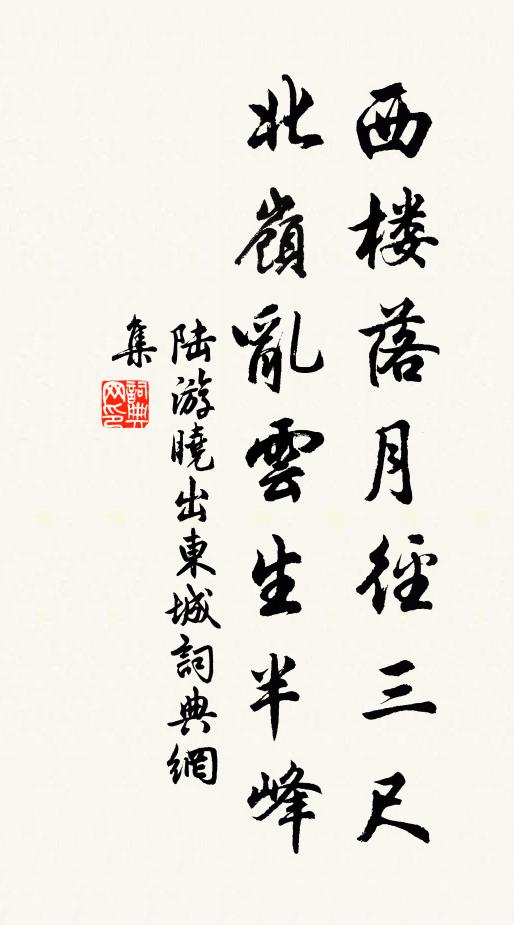 西楼落月径三尺
北嶺亂雲生半峰
陆游曉出東城詞典網
集
詞典
网印